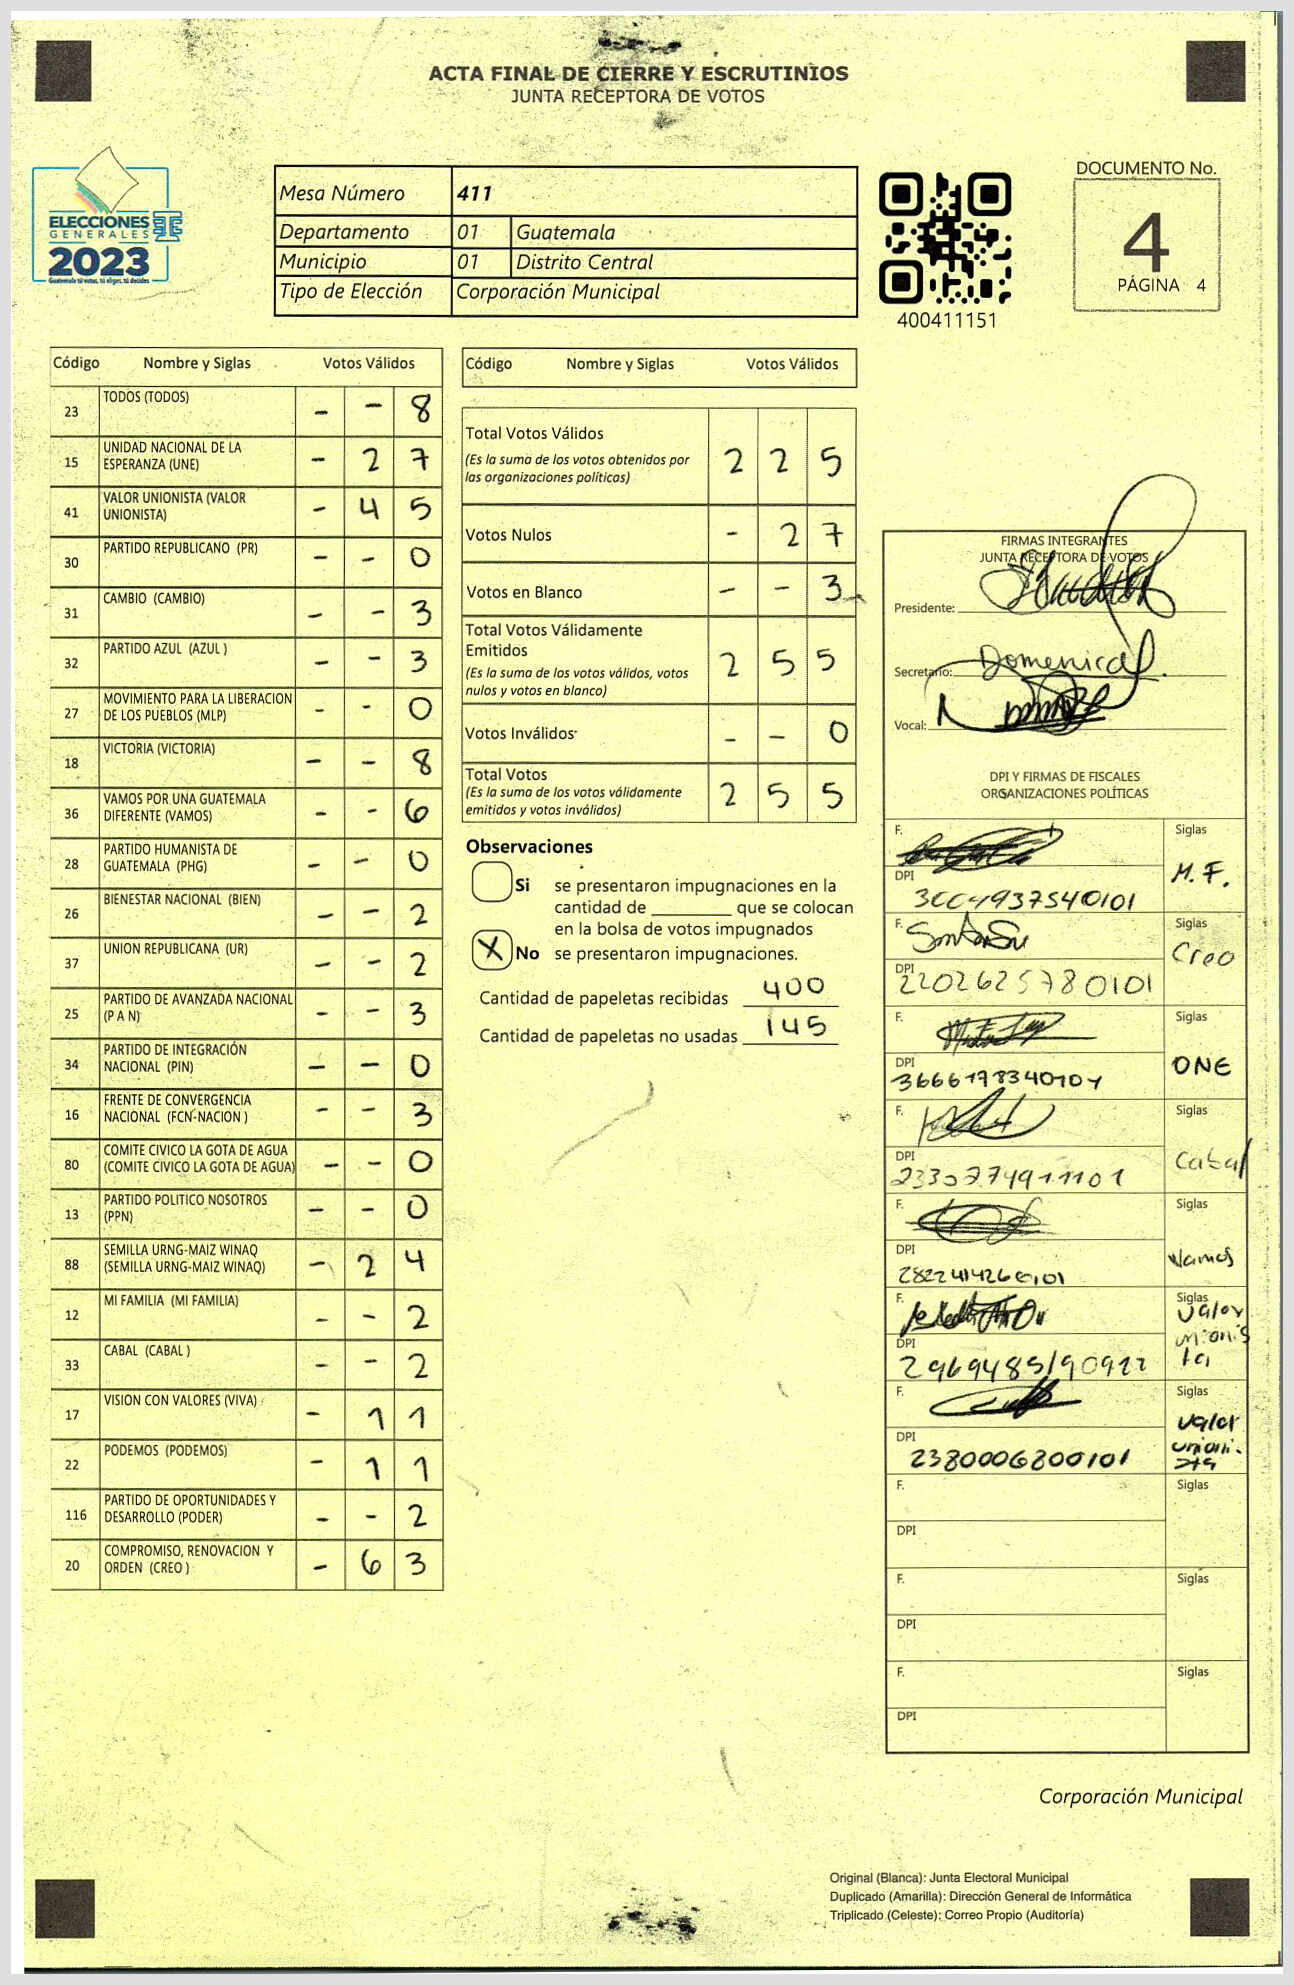 ACTA FINAL DE CIERRE Y ESCRUTINIOS
JUNTA RECEPTORA DE VOTOS
ELECCIONES
GENERALES
2023
Guatemala tú votas, tú eliges, tú decides
Mesa Número 411
Departamento 01 Guatemala
Municipio 01 Distrito Central
Tipo de Elección Corporación Municipal
400411151
DOCUMENTO No.
4
PÁGINA 4
Código Nombre y Siglas Votos Válidos
23 TODOS (TODOS) - - 8
15 UNIDAD NACIONAL DE LA
ESPERANZA (UNE) - 2 7
41 VALOR UNIONISTA (VALOR
UNIONISTA) - 4 5
30 PARTIDO REPUBLICANO (PR) - - 0
31 CAMBIO (CAMBIO) - - 3
32 PARTIDO AZUL (AZUL ) - - 3
27 MOVIMIENTO PARA LA LIBERACION
DE LOS PUEBLOS (MLP) - - 0
18 VICTORIA (VICTORIA) - - 8
36 VAMOS POR UNA GUATEMALA
DIFERENTE (VAMOS) - - 6
28 PARTIDO HUMANISTA DE
GUATEMALA (PHG) - - 0
26 BIENESTAR NACIONAL (BIEN) - - 2
37 UNION REPUBLICANA (UR) - - 2
25 PARTIDO DE AVANZADA NACIONAL
(P A N) - - 3
34 PARTIDO DE INTEGRACIÓN
NACIONAL (PIN) - - 0
16 FRENTE DE CONVERGENCIA
NACIONAL (FCN-NACION ) - - 3
80 COMITE CIVICO LA GOTA DE AGUA
(COMITE CIVICO LA GOTA DE AGUA) - - 0
13 PARTIDO POLITICO NOSOTROS
(PPN) - - 0
88 SEMILLA URNG-MAIZ WINAQ
(SEMILLA URNG-MAIZ WINAQ) - 2 4
12 MI FAMILIA (MI FAMILIA) - - 2
33 CABAL (CABAL ) - - 2
17 VISION CON VALORES (VIVA) - 1 1
22 PODEMOS (PODEMOS) - 1 1
116 PARTIDO DE OPORTUNIDADES Y
DESARROLLO (PODER) - - 2
20 COMPROMISO, RENOVACION Y
ORDEN (CREO ) - 6 3
Código Nombre y Siglas Votos Válidos
Total Votos Válidos
(Es la suma de los votos obtenidos por
las organizaciones políticas) 2 2 5
Votos Nulos - 2 7
Votos en Blanco - - 3
Total Votos Válidamente
Emitidos
(Es la suma de los votos válidos, votos
nulos y votos en blanco) 2 5 5
Votos Inválidos - - 0
Total Votos
(Es la suma de los votos válidamente
emitidos y votos inválidos) 2 5 5
Observaciones
Si se presentaron impugnaciones en la
cantidad de ________ que se colocan
en la bolsa de votos impugnados
X No se presentaron impugnaciones.
Cantidad de papeletas recibidas 400
Cantidad de papeletas no usadas 145
FIRMAS INTEGRANTES
JUNTA RECEPTORA DE VOTOS
Presidente:
Secretario:
Vocal:
DPI Y FIRMAS DE FISCALES
ORGANIZACIONES POLÍTICAS
F. Siglas
M.F.
DPI
F. Siglas
Creo
DPI
2202625780101
F. Siglas
ONE
DPI
F. Siglas
Cabal
DPI
F. Siglas
Vamos
DPI
F. Siglas
Valor
unionis
ta
DPI
F. Siglas
Valor
unioni-
sta
DPI
2380006800101
F. Siglas
DPI
F. Siglas
DPI
F. Siglas
DPI
Corporación Municipal
Original (Blanca): Junta Electoral Municipal
Duplicado (Amarilla): Dirección General de Informática
Triplicado (Celeste): Correo Propio (Auditoría)